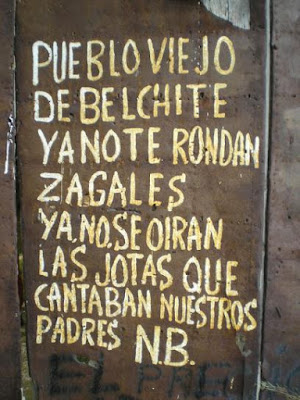 PUEBLO VIEJO
DE BELCHITE
YA NO TE RONDAN
ZAGALES
YA.NO.SE OIRAN
LAS JOTAS QUE
CANTABAN NUESTROS
PADRES NB.